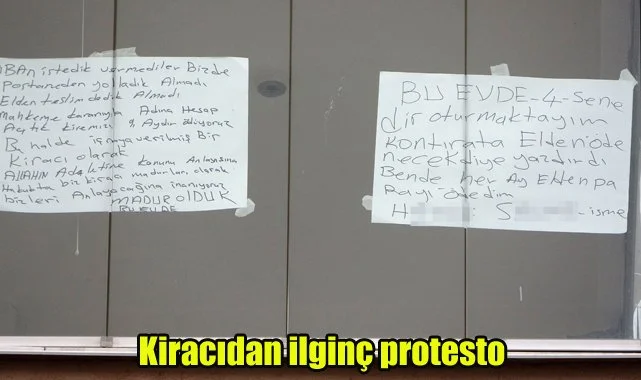 İBAN istedik vermediler Bizde
Postaneden yolladık Almadı
Elden teslim dedik Almadı
Mahkeme kararıyla Adına Hesap
Açtık kiremizi Aydır ödiyoruz
Bu halde icraya verilmiş Bir
kiracı olarak
ALLAHIN Adaletine kanunu Anlayışına
Hukukta biz kiracı madurları olarak
bizleri Anlayacağına inanıyoruz
MADUR OLDUK
BU EVDE
BU EVDE-4-sene
dir oturmaktayım
kontırata Elden öde
necek diye yazdırdı
Bende her Ay Elden pa
Rayı ödedim
H S isme
Kiracıdan ilginç protesto